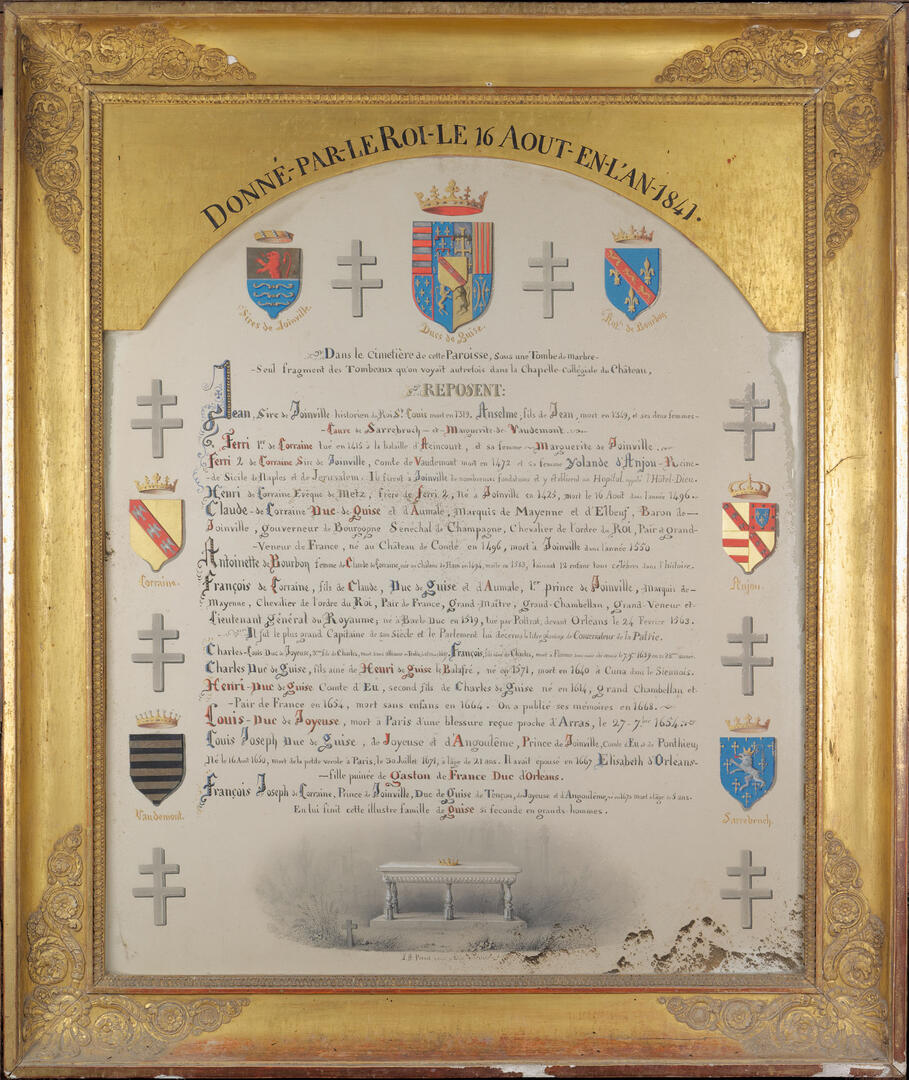 DONNÉ-PAR-LE ROI-LE 16 AOUT-EN-L'AN-1841.
Sires de Joinville.
Ducs de Guise.
de Bourbon
Dans le Cimetière de cette Paroisse, Sous une Tombe de marbre-
-Seul fragment des Tombeaux qu'on voyait autrefois dans la Chapelle Collégiale du Château,
REPOSENT:
Jean, Sire de Joinville historien du Roi St. Louis mort en 1319, Anselme, fils de Jean, mort en 1349, et ses deux femmes-
-Laure de Sarrebruch - et - Marguerite de Vaudemont.
Ferri 1er de Lorraine tué en 1415 à la bataille d'Azincourt, et sa femme - Marguerite de Joinville.
Ferri 2 de Lorraine Sire de Joinville, comte de Vaudemont mort en 1472 et sa femme Yolande d'Anjou - Reine-
-de Sicile de Naples et de Jerusalem. Ils firent à Joinville de nombreuses fondations et y établirent un Hopital appelé l'Hôtel-Dieu.
Henri de Lorraine Evêque de Metz, frère de Ferri 2, né à Joinville en 1425, mort le 16 Août dans l'année 1496.
Claude-de Lorraine Duc-de guise et d'Aumale, Marquis de Mayenne et d'Elbeuf, Baron de-
Joinville, gouverneur de Bourgogne Sénéchal de Champagne, Chevalier de l'ordre du ROI, Pair et Grand-
-Veneur de France, né au Château de Condé en 1496, mort à Joinville dans l'année 1550
Antoinette de Bourbon femme de Claude de Lorraine, née au château de Ham en 1494, morte en 1583, laissant 12 enfans tous célèbres dans l'histoire.
François de Lorraine, fils de Claude, Duc de guise et d'Aumale, 1er prince de Joinville, Marquis de-
Mayenne, Chevalier de l'ordre du Roi, Pair de France, grand-Maître, grand-Chambellan, grand-Veneur et-
Lieutenant général du Royaume; né à Bar-le-Duc en 1519, tué par Poltrot, devant Orléans le 24 Février 1563.
Il fut le plus grand Capitaine de son Siècle et le Parlement lui décerna le titre glorieux de Conservateur de la Patrie.
Charles-Louis Duc de Joyeuse, fils de Charles, mort François, fils aîné de Charles, mort à Florence 1639
Charles Duc de Guise, fils aîné de Henri de guise le Balafré, né en 1571, mort en 1640 à Cuna dans le Siennois.
Henri-Duc de guise Comte d'Eu, second fils de Charles de guise né en 1614, grand Chambellan et-
-Pair de France en 1654, mort sans enfans en 1664. On a publié ses mémoires en 1668.
Louis-Duc de Joyeuse, mort à Paris d'une blessure reçue proche d'Arras, le 27-7bre 1654.
Louis Joseph Duc de guise, de Joyeuse et d'Angoulême, Prince de Joinville, Comte d'Eu et de Ponthieu,
Né le 16 Août 1650, mort de la petite vérole à Paris, le 30 Juillet 1671, à l'âge de 21 ans. Il avait épousé en 1667 Elisabeth d'Orléans-
-fille puinée de Gaston de France Duc d'Orléans.
François Joseph de Lorraine, Prince de Joinville, Duc de Guise de Joyeuse et d'Angoulême, mort à l'âge de 5 ans.
En lui finit cette illustre famille de guise si féconde en grands hommes.
Lorraine.
Anjou.
Vaudemont.
Sarrebruch.